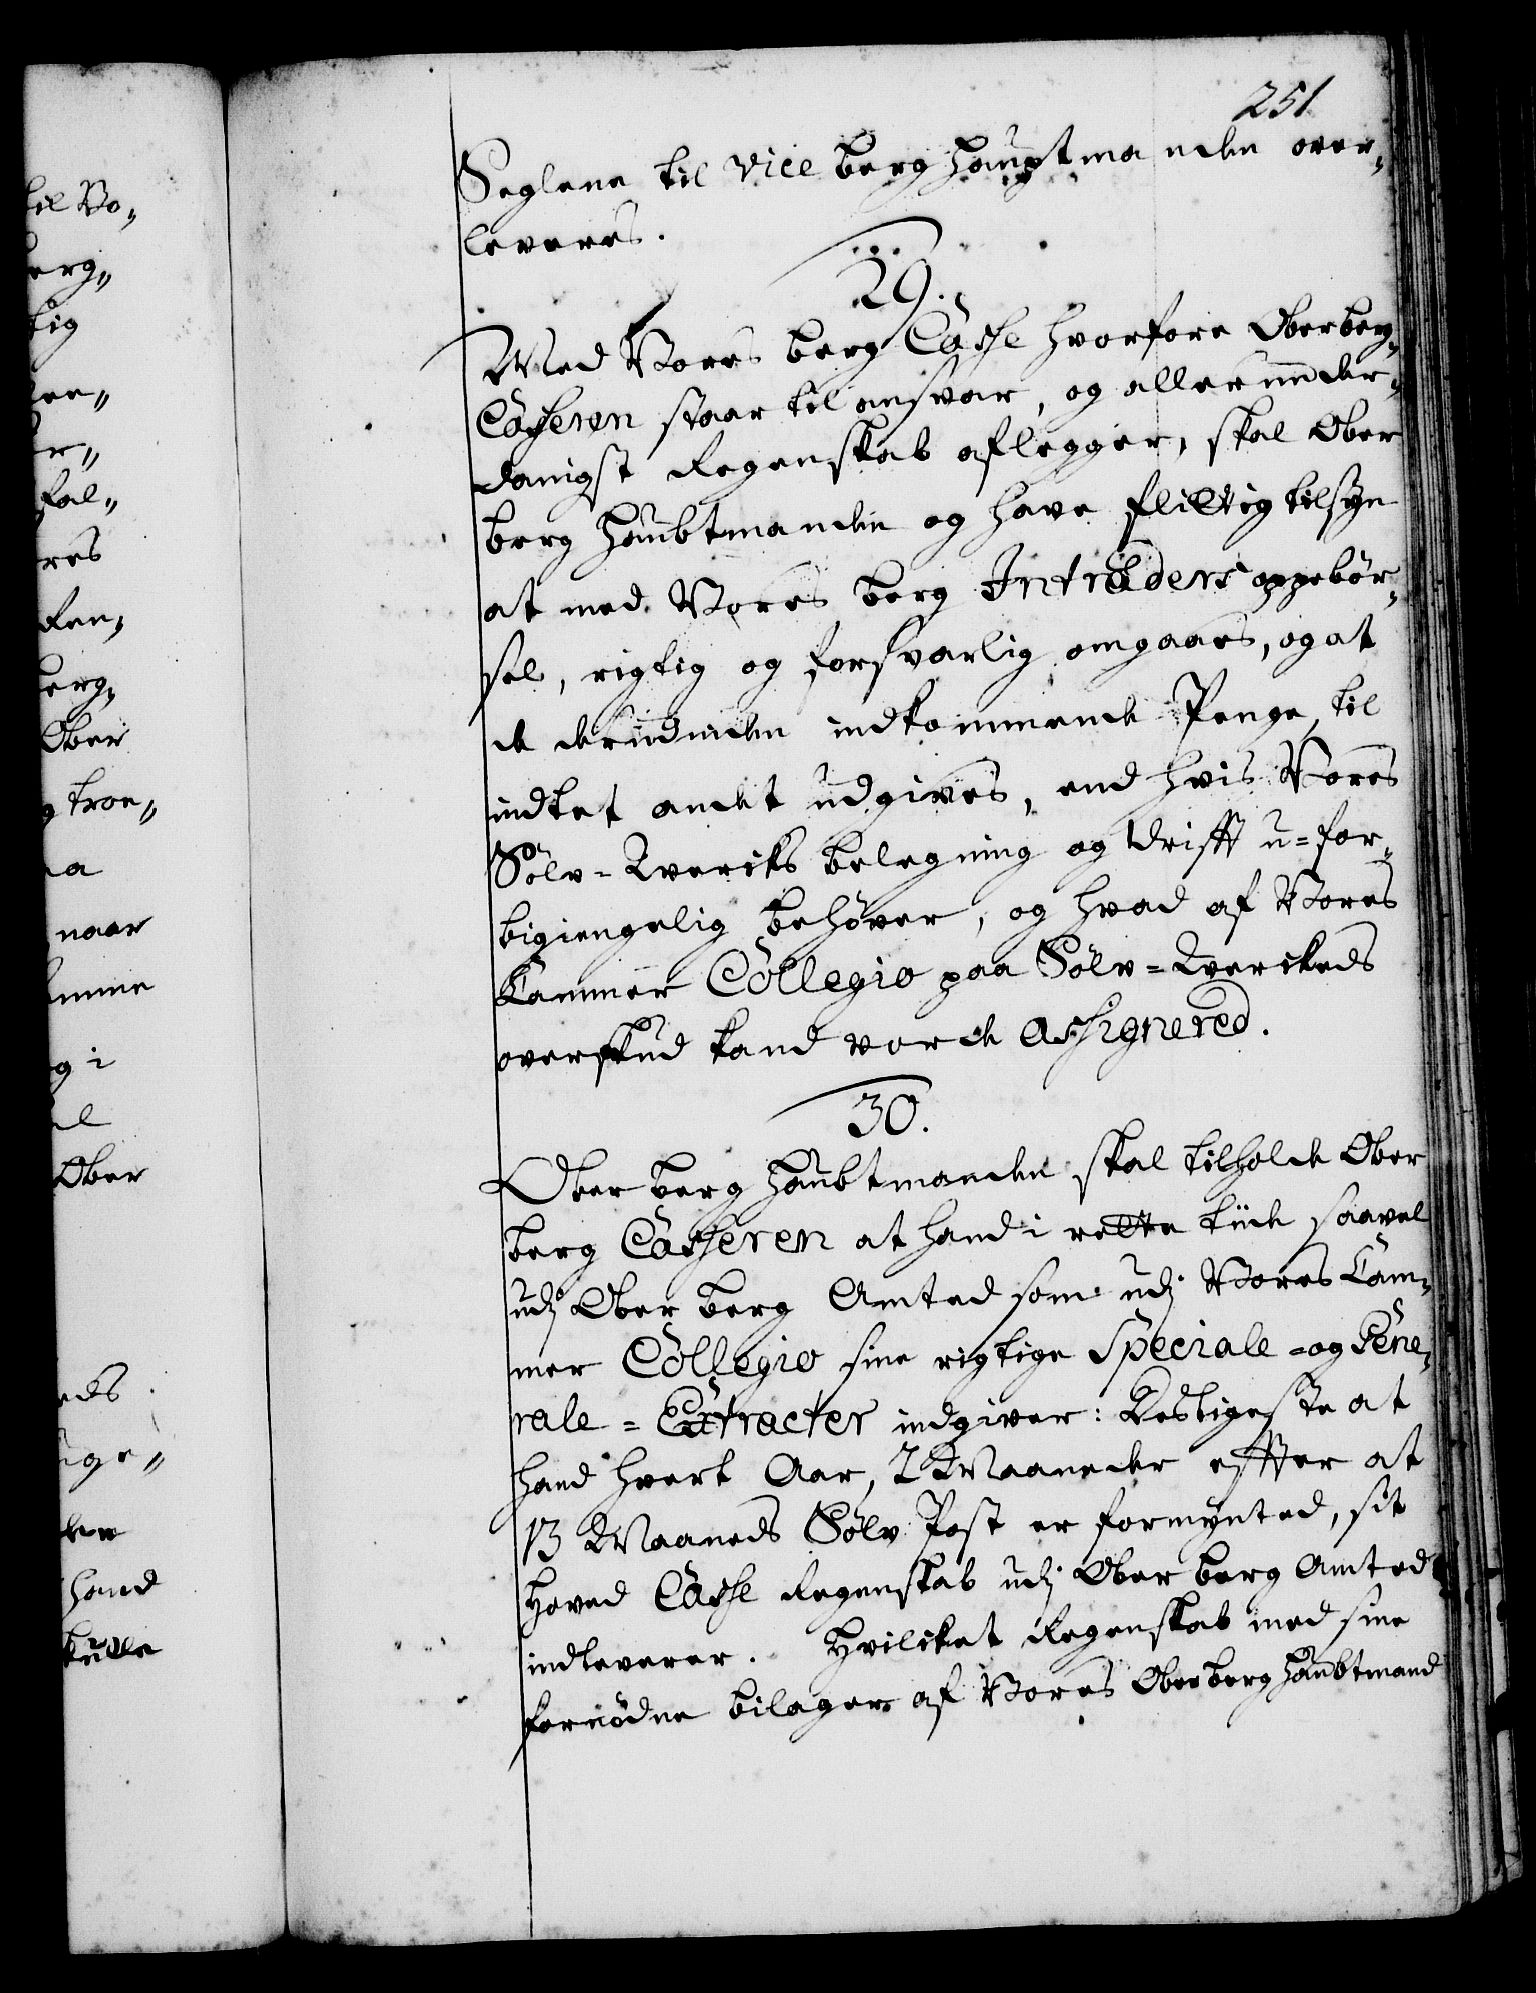 251
Seglene til Vice berg Hauptmanden over,,
leveres.
29.
Med Vores berg Casse hvorfore Oberberg,,
Casseren staar til ansvar, og allerunder,,
danigst Regenskab aflegger, skal Ober
berg Haubtmanden og have flittig tilsyn
at med Vores berg Intraders oppebør,,
sel, rigtig og forsvarlig omgaaes, og at
de derudinden indkommende Penge, til
indtet andet udgives, end hvis Vores
Sølv-Werks belegning og drifft u-for,,
bigiengelig behøver, og hvad af Vores
Cammer Collegio paa Sølv-Werkeds
overskud kand vorde Assignered.
30.
Ober berg Haubtmanden skal tilholde Ober
berg Casseren at hand i rette tiide saavel
udj Ober berg Amted som udj Vores Cam,,
mer Collegio sine rigtige Speciale - og Gene,,
rale - Extracter indgiver: Desligeste at
hand hvert Aar, 2 Maaneder effter at
13 Maaneds Sølv Post er formynted, sit
Hoved Casse Regenskab udj Ober berg Amted
indleverer. Hvilcket Regenskab med sine
fornødne bilager af Vores Oberberg Haubtmand
til Vo,,
erg,,
tig
r,,
fal,,
res
berg,,
Ober
g troe,,
naar
g i
Ober
eds
hand